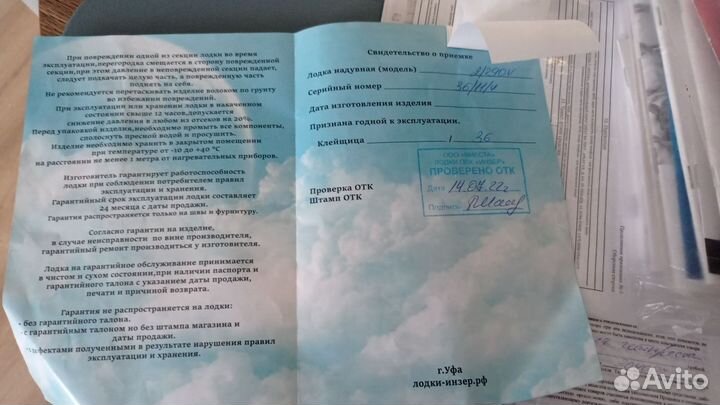 При повреждении одной из секции лодки во время
эксплуатации,перегородка смещается в сторону поврежденной
секции,при этом давление в неповрежденной секции падает,
следует подкачать целую часть, а поврежденную часть
поднять на себя.
Не рекомендуется перетаскивать изделие волоком по грунту
во избежании повреждений.
При эксплуатации или хранении лодки в накаченном
состоянии свыше 12 часов,допускается
снижение давления в любом из отсеков на 20%.
Перед упаковкой изделия,необходимо промыть все компоненты,
сполоснуть пресной водой и просушить.
Изделие необходимо хранить в закрытом помещении
при температуре от -10 до +40 °С
на расстоянии не менее 1 метра от нагревательных приборов.
Изготовитель гарантирует работоспособность
лодки при соблюдении потребителем правил
эксплуатации и хранения.
Гарантийный срок эксплуатации лодки составляет
24 месяца с даты продажи.
Гарантия распространяется только на швы и фурнитуру.
Согласно гарантии на изделие,
в случае неисправности по вине производителя,
гарантийный ремонт производиться у изготовителя.
Лодка на гарантийное обслуживание принимается
в чистом и сухом состоянии,при наличии паспорта и
гарантийного талона с указанием даты продажи,
печати и причиной возврата.
Гарантия не распространяется на лодки:
- без гарантийного талона.
-с гарантийным талоном но без штампа магазина и
даты продажи.
дефектами полученными в результате нарушения правил
эксплуатации и хранения.
Свидетельство о приемке
Лодка надувная (модель) 2/290V
Серийный номер 36/11/4
Дата изготовления изделия
Признана годной к эксплуатации.
Клейщица / 36
ЛОДКИ ПВХ «ИНЗЕР»
ПРОВЕРЕНО ОТК
Дата 14.07.22г
Подпись
Проверка ОТК
Штамп ОТК
г.Уфа
лодки-инзер.рф
Avito